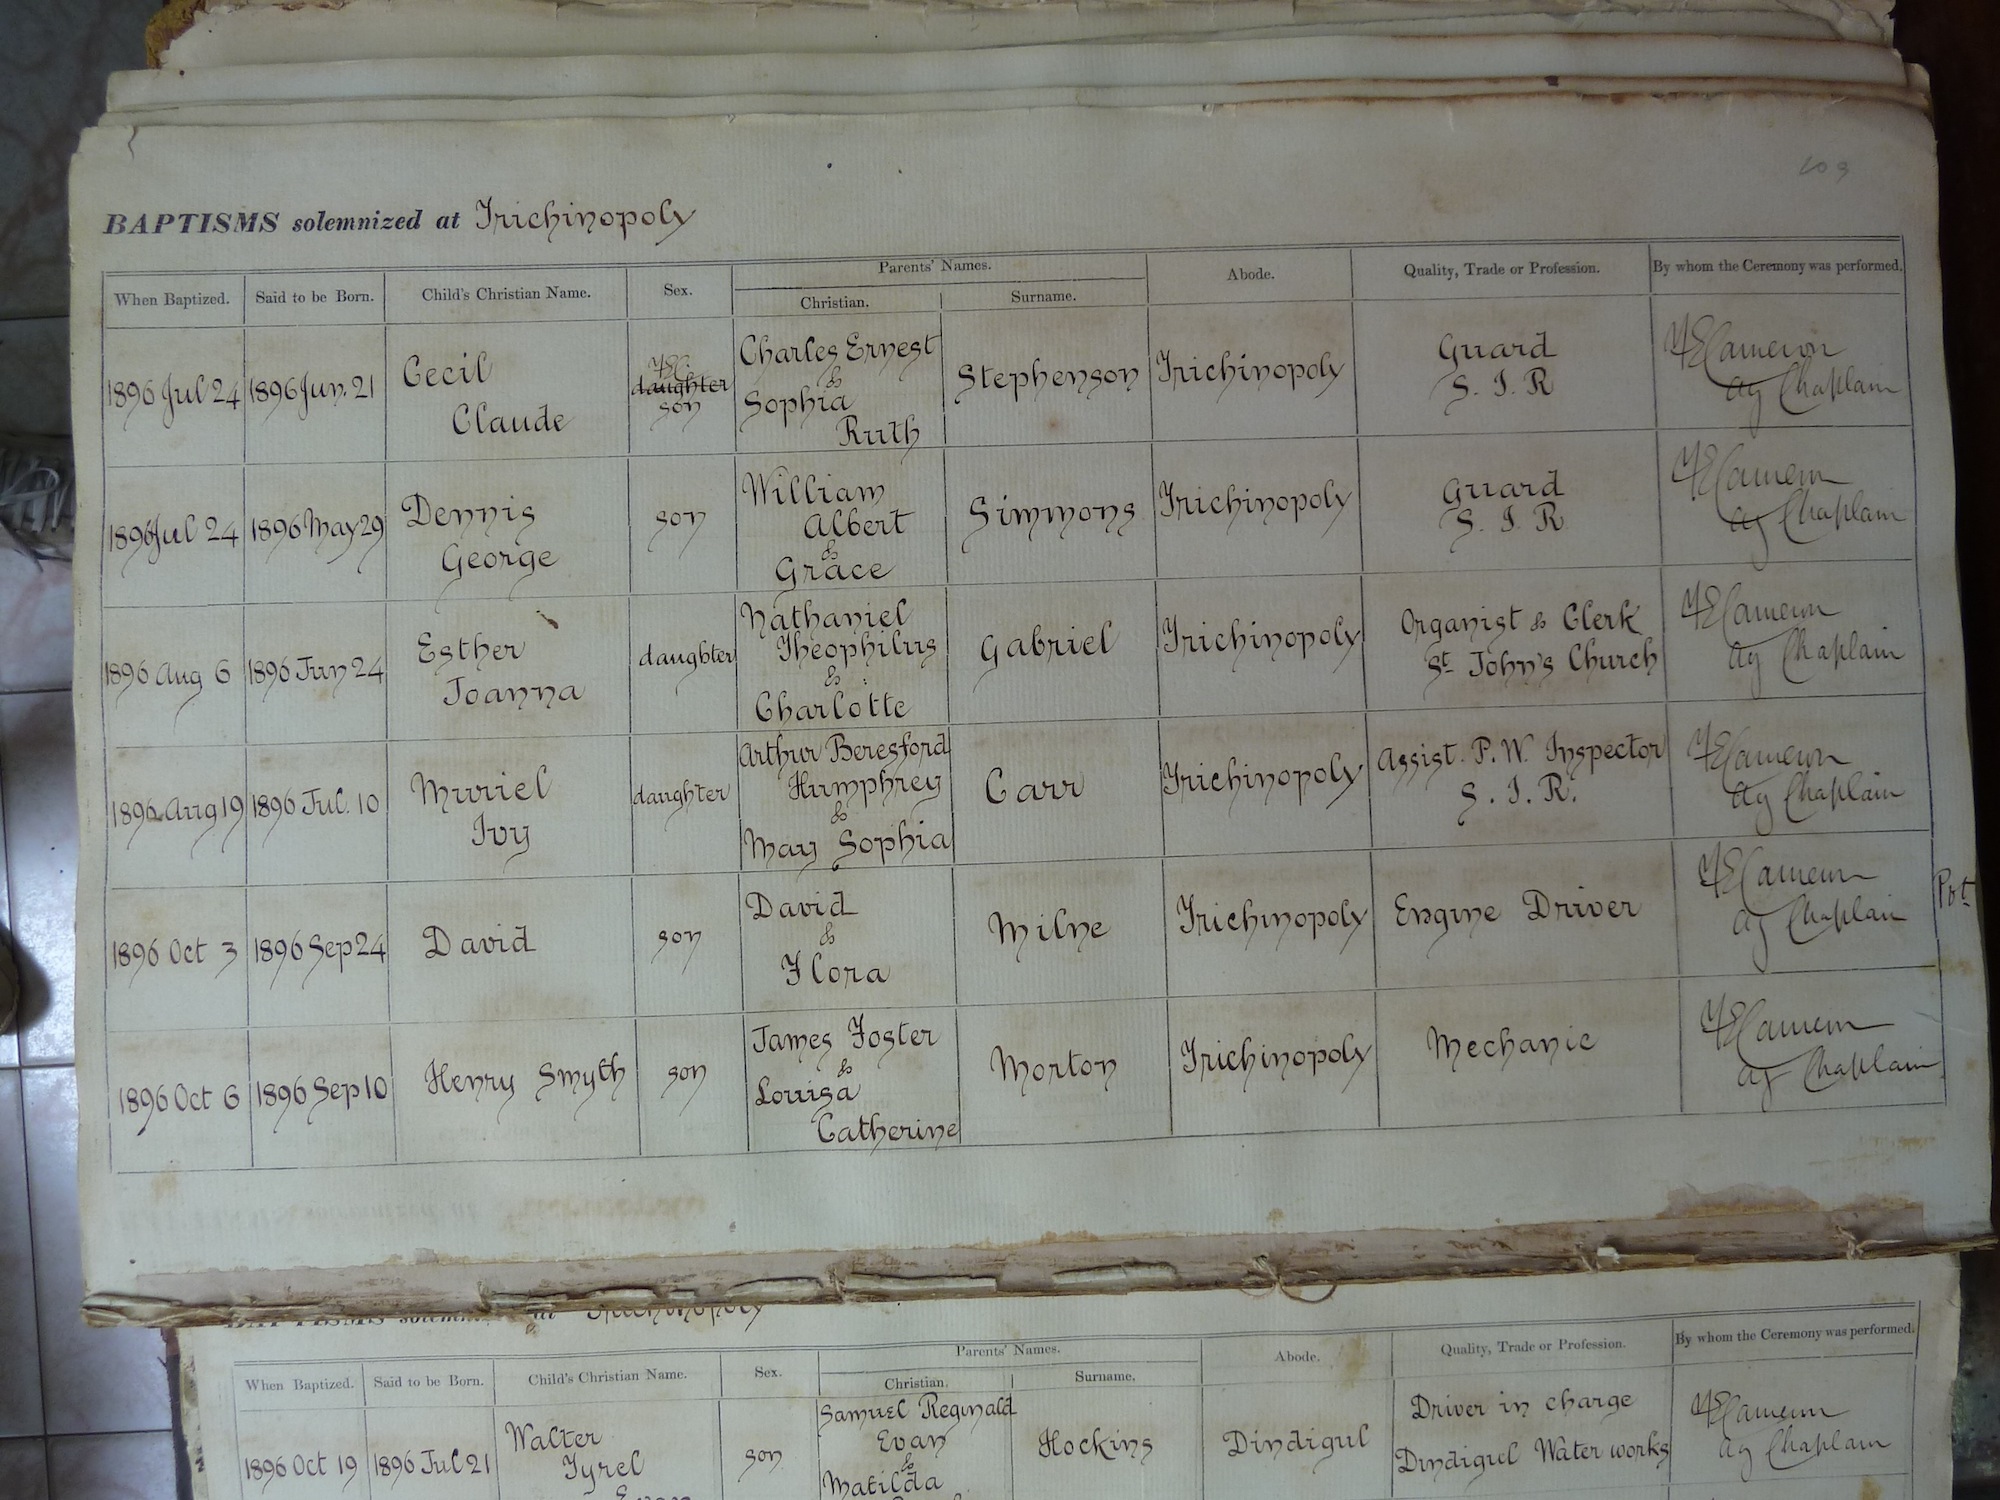 109
BAPTISMS solemnized at Trichinopoly
When Baptized. Said to be Born. Child's Christian Name. Sex. Parents' Names. Abode. Quality, Trade or Profession. By whom the Ceremony was performed.
Christian. Surname.
1896 Jul 24 1896 Jun. 21 Cecil Claude daughter son Charles Ernest & Sophia Ruth Stephenson Trichinopoly Guard S. I. R Cameron Ag Chaplain
1896 Jul 24 1896 May 29 Dennis George son William Albert & Grace Simmons Trichinopoly Guard S. I. R Cameron Ag Chaplain
1896 Aug 6 1896 Jun 24 Esther Joanna daughter Nathaniel Theophilus & Charlotte Gabriel Trichinopoly Organist & Clerk St. John's Church Cameron Ag Chaplain
1896 Aug 19 1896 Jul. 10 Muriel Ivy daughter Arthur Beresford Humphrey & May Sophia Carr Trichinopoly Assist. P. W. Inspector S. I. R. Cameron Ag Chaplain
1896 Oct 3 1896 Sep 24 David son David & Flora Milne Trichinopoly Engine Driver Cameron Ag Chaplain Pvt
1896 Oct 6 1896 Sep 10 Henry Smyth son James Foster & Louisa Catherine Morton Trichinopoly Mechanic Cameron Ag Chaplain
BAPTISMS solemnized at Trichinopoly
When Baptized. Said to be Born. Child's Christian Name. Sex. Parents' Names. Abode. Quality, Trade or Profession. By whom the Ceremony was performed.
Christian. Surname.
1896 Oct 19 1896 Jul 21 Walter Tyrel Evan son Samuel Reginald Evan & Matilda Hockins Dindigul Driver in charge Dindigul Water works Cameron Ag Chaplain